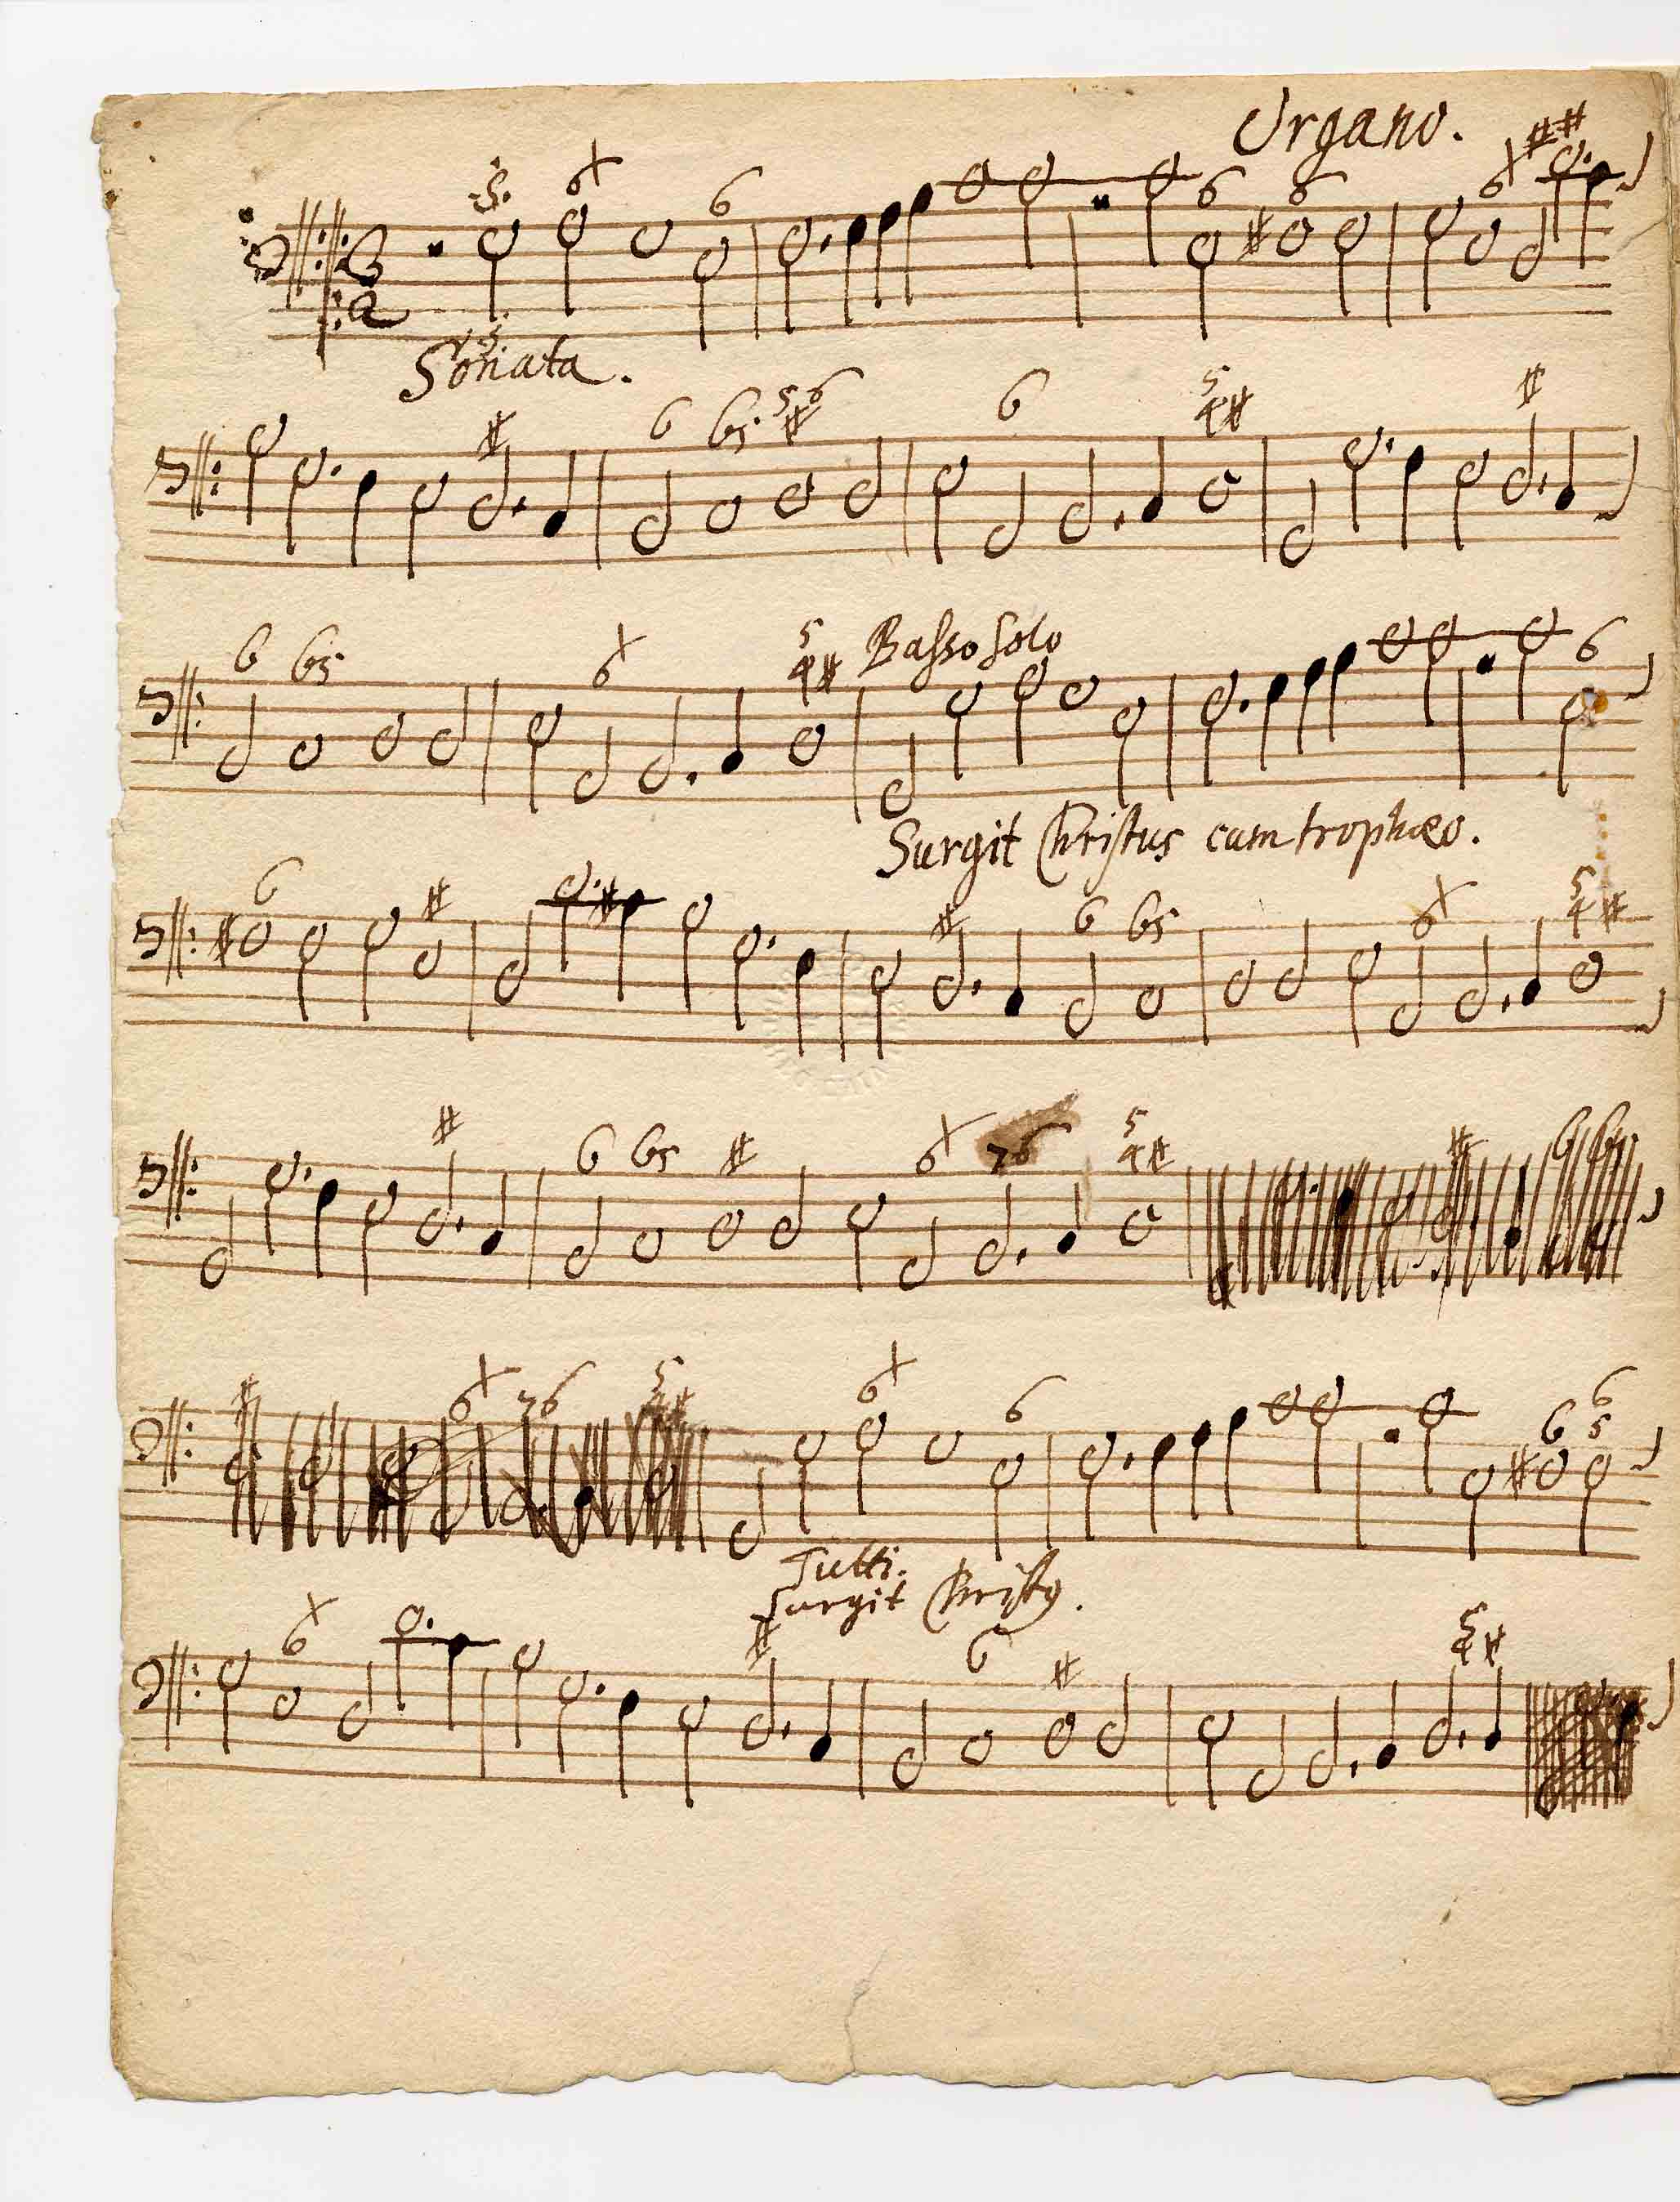 Organo.
Sonata.
Basso Solo
Surgit Christus cum trophæo.
Tutti.
Surgit Christ9.